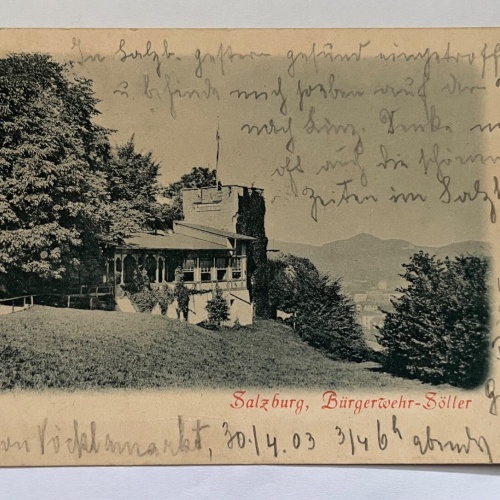 In Salzb. gestern gesund eingetroff
u. befinde mich soeben auf der
nach Linz. Denke
oft an die schönen
Zeiten im Salzb
Salzburg, Bürgerwehr-Söller
von Vöcklamarkt, 30./4.03 3/4 6h abends